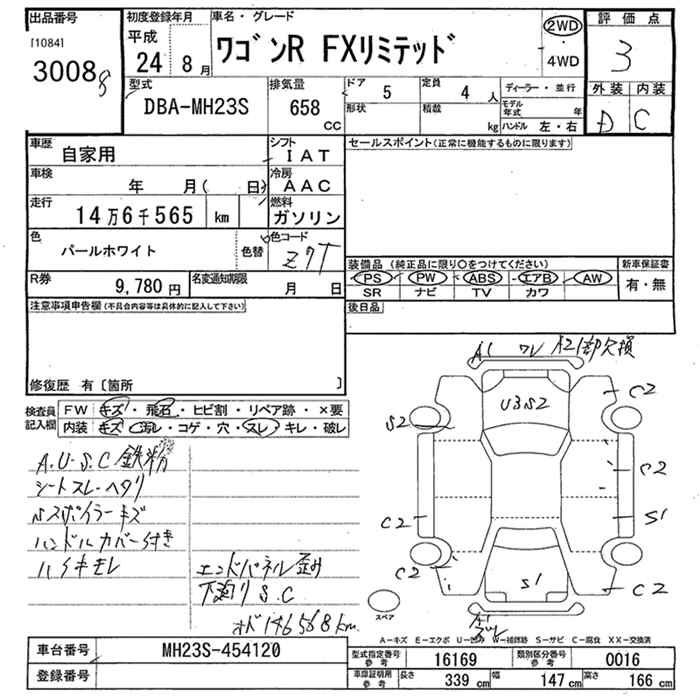 出品番号
[1084]
3008
初度登録年月
平成
24 8月
車名・グレード
ワゴンR FXリミテッド
2WD
4WD
評価点
3
外装 内装
D C
型式
DBA-MH23S
排気量
658
CC
ドア 5
形状
定員 4 人
積載 kg
ディーラー・並行
モデル年式 年
ハンドル 左・右
車歴
自家用
シフト
IAT
車検
年 月( 日)
冷房
AAC
走行
14万6千565 km
燃料
ガソリン
色
パールホワイト
色替
色コード
Z7T
R券
9,780円
名変通知期限
月 日
セールスポイント(正常に機能するものに限ります)
装備品(純正品に限り○をつけてください)
新車保証書
PS PW ABS エアB AW
有・無
SR ナビ TV カワ
後日品
注意事項申告欄(不具合内容等は具体的に記入して下さい)
修復歴 有[箇所 ]
検査員
記入欄
FW キズ・飛石・ヒビ割・リペア跡・×要
内装 キズ・汚レ・コゲ・穴・スレ・キレ・破レ
A.U.S.C鉄粉
シートスレ・ヘタリ
Nスポイラーキズ
ハンドルカバー付き
ハイキモレ
エンドパネル歪み
下廻りS.C
オド146568km
A1 ワレ A21部欠損
U3S2
S2
C2
C2
S1
C2
C2
C2
S1
スペア
A-キズ E-エクボ U-凹み W-補修跡 S-サビ C-腐食 XX-交換済
車台番号
MH23S-454120
登録番号
型式指定番号
参考
16169
類別区分番号
参考
0016
車庫証明用
参考
長さ 339 cm
幅 147 cm
高さ 166 cm